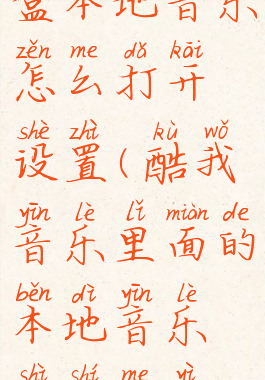 盒本地音乐
zěn me dǎ kāi
怎么打开
shè zhì kù wǒ
设置(酷我
yīn lè lǐ miàn de
音乐里面的
běn dì yīn lè
本地音乐
shì shí me yì